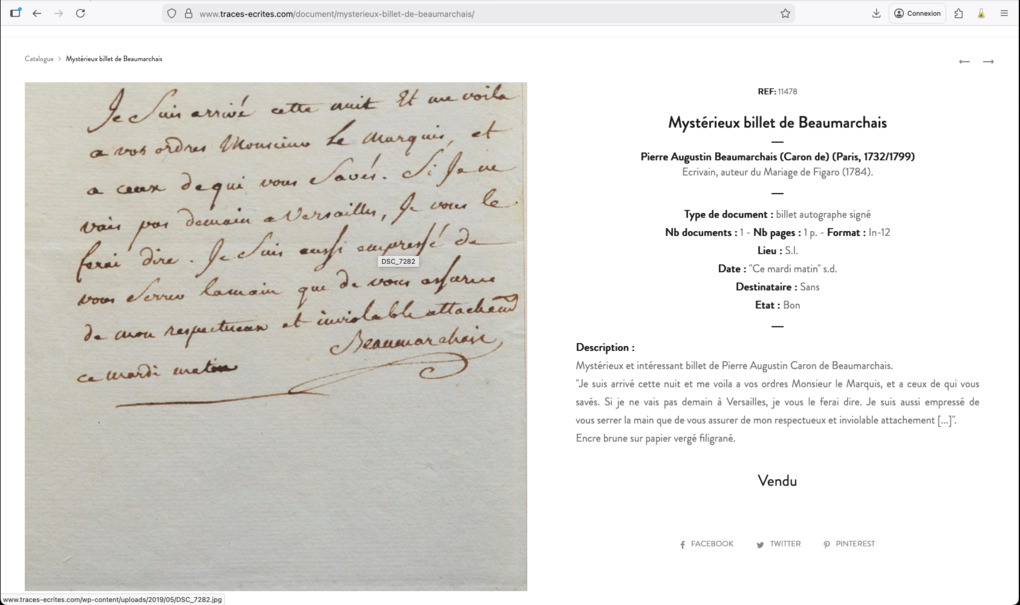 www.traces-ecrites.com/document/mysterieux-billet-de-beaumarchais/
Connexion
Catalogue > Mystérieux billet de Beaumarchais
Je suis arrivé cette nuit Et me voila
a vos ordres Monsieur Le Marquis, et
a ceux de qui vous Savés. Si Je ne
vais pas demain a Versailles, Je vous le
ferai dire. Je Suis aussi empressé de
vous Serrer lamain que de vous assurer
de mon respectueux et inviolable attachement
Beaumarchais,
ce mardi matin
DSC_7282
REF: 11478
Mystérieux billet de Beaumarchais
Pierre Augustin Beaumarchais (Caron de) (Paris, 1732/1799)
Ecrivain, auteur du Mariage de Figaro (1784).
Type de document : billet autographe signé
Nb documents : 1 - Nb pages : 1 p. - Format : In-12
Lieu : S.l.
Date : "Ce mardi matin" s.d.
Destinataire : Sans
Etat : Bon
Description :
Mystérieux et intéressant billet de Pierre Augustin Caron de Beaumarchais.
"Je suis arrivé cette nuit et me voila a vos ordres Monsieur le Marquis, et a ceux de qui vous
savés. Si je ne vais pas demain à Versailles, je vous le ferai dire. Je suis aussi empressé de
vous serrer la main que de vous assurer de mon respectueux et inviolable attachement [...]".
Encre brune sur papier vergé filigrané.
Vendu
FACEBOOK
TWITTER
PINTEREST
www.traces-ecrites.com/wp-content/uploads/2019/05/DSC_7282.jpg